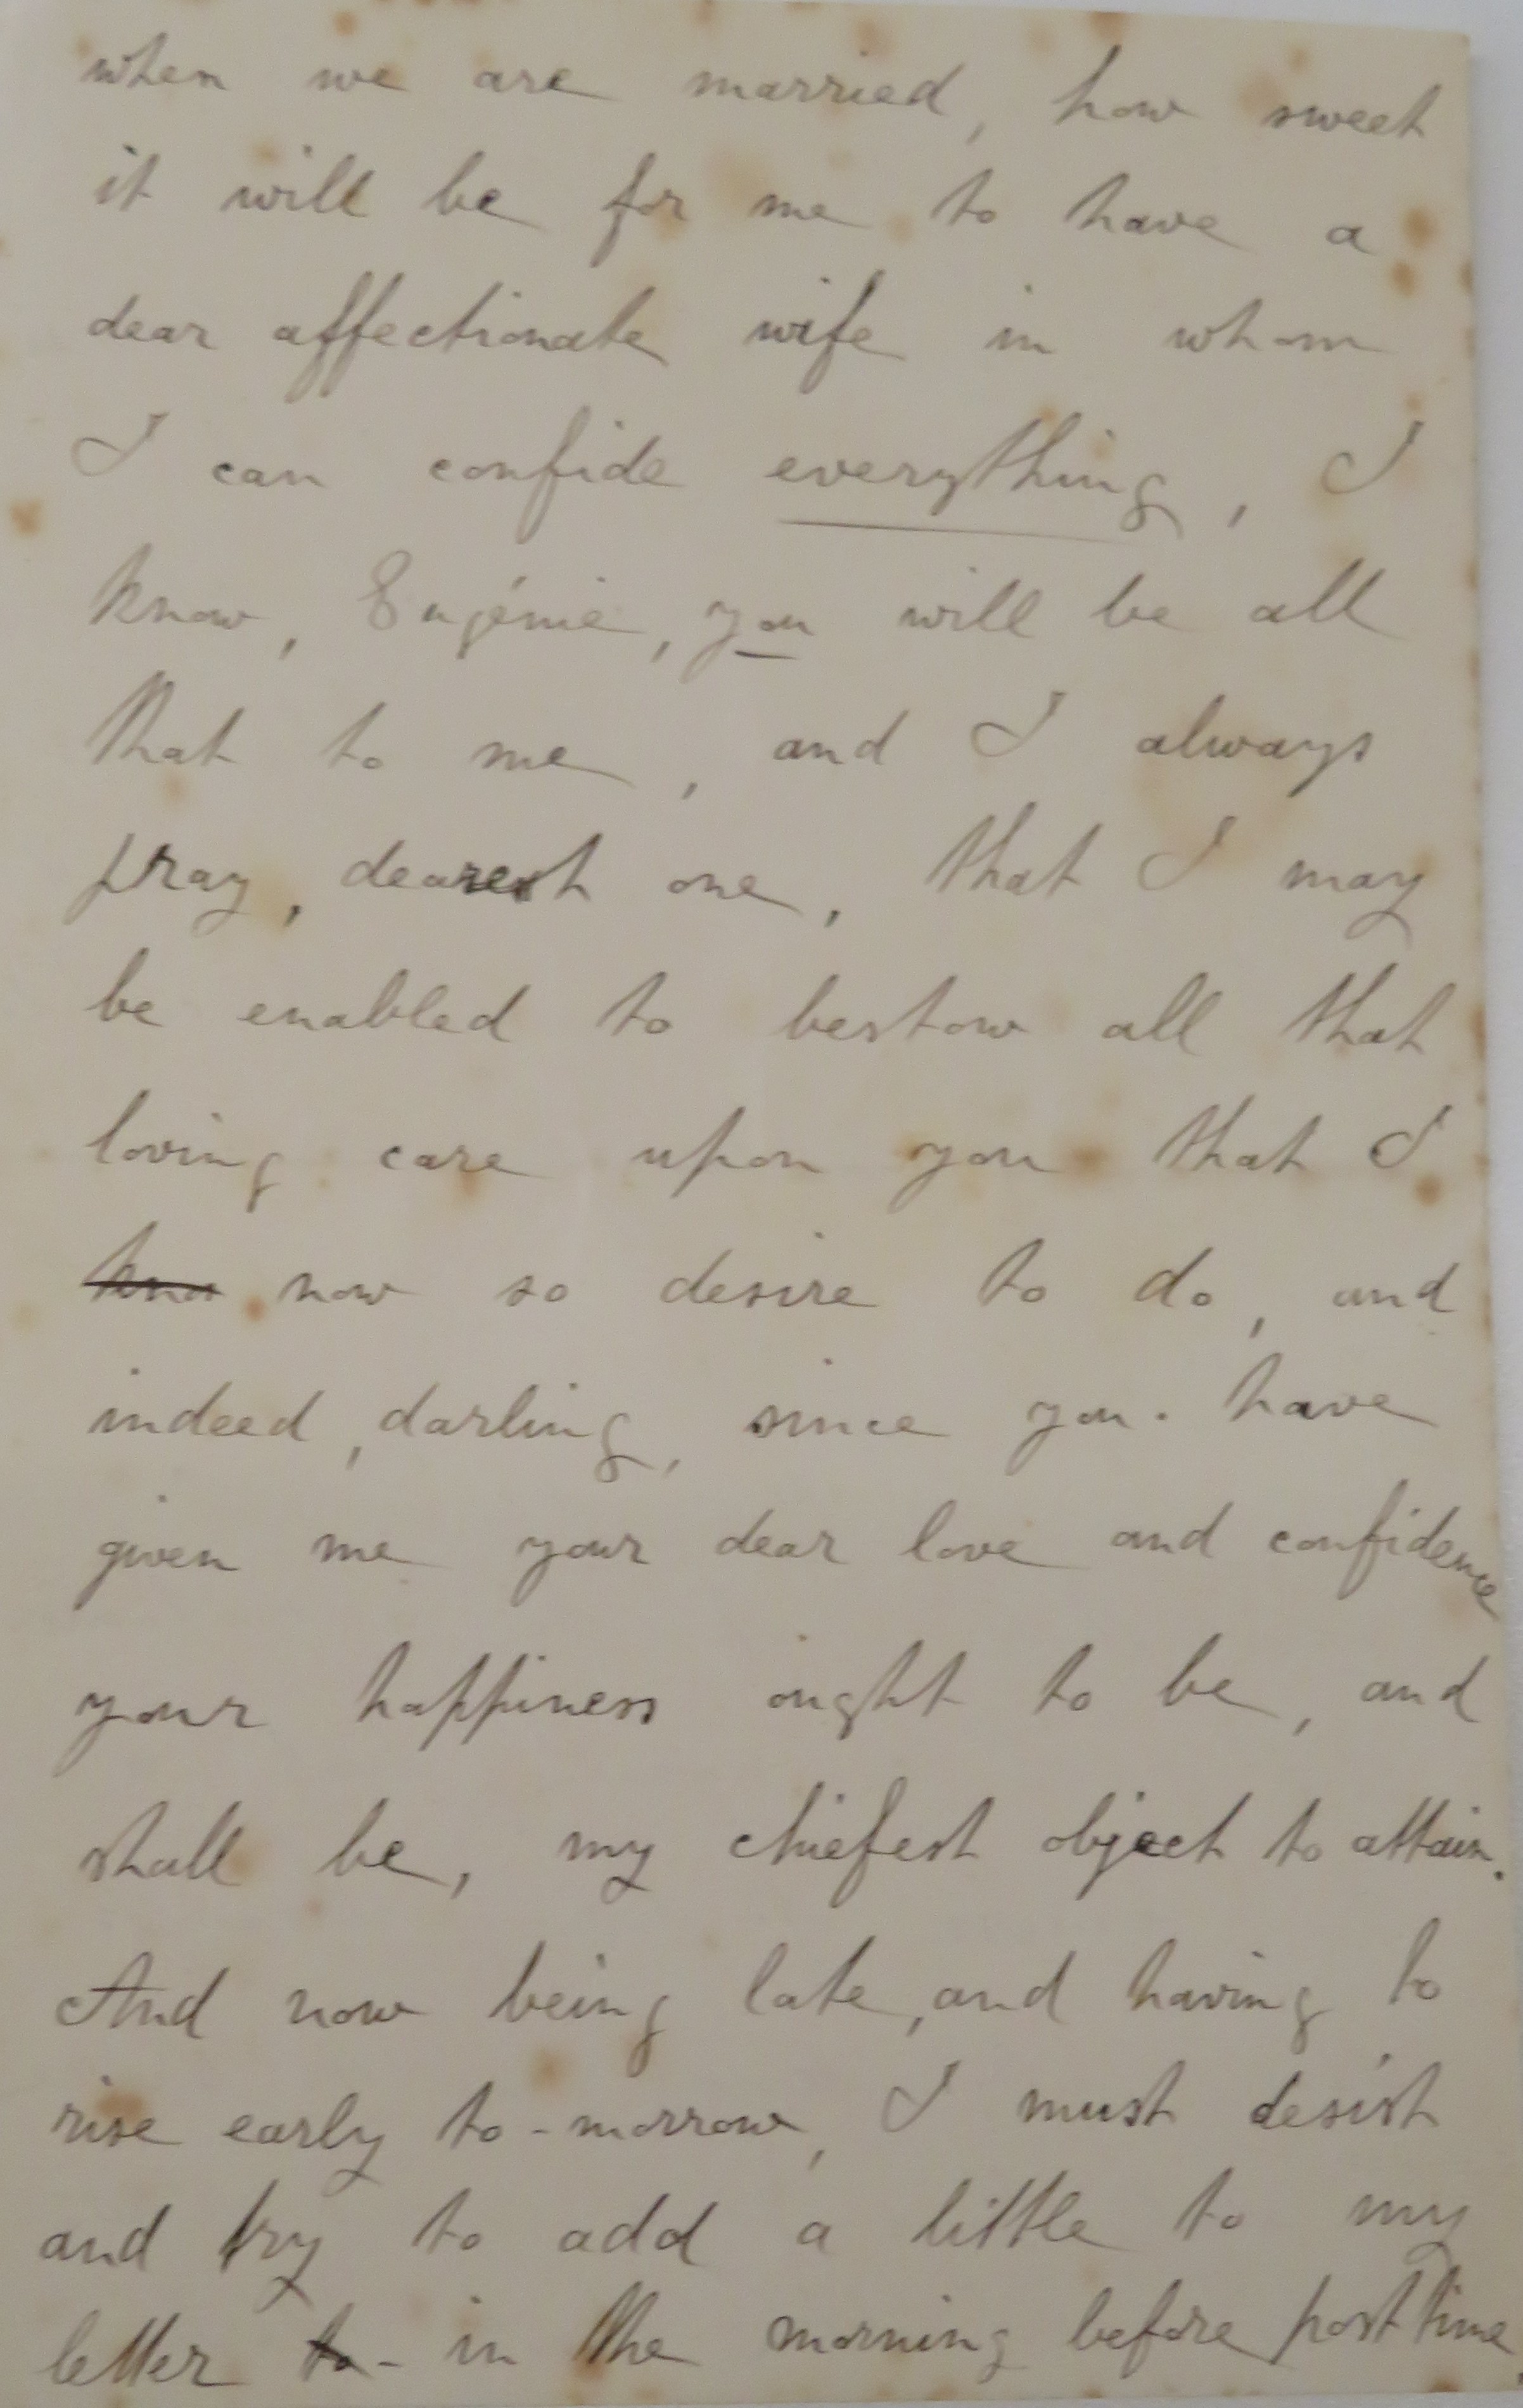 when we are married, how sweet
it will be for me to have a
dear affectionate wife in whom
I can confide everything, I
know, Eugénie, you will be all
that to me, and I always
pray, dearest one, that I may
be enabled to bestow all that
loving care upon you that I
kno now so desire to do, and
indeed, darling, since you have
given me your dear love and confidence
your happiness ought to be, and
shall be, my chiefest object to attain.
And now being late, and having to
rise early to-morrow, I must desist
and try to add a little to my
letter to - in the morning before post time.